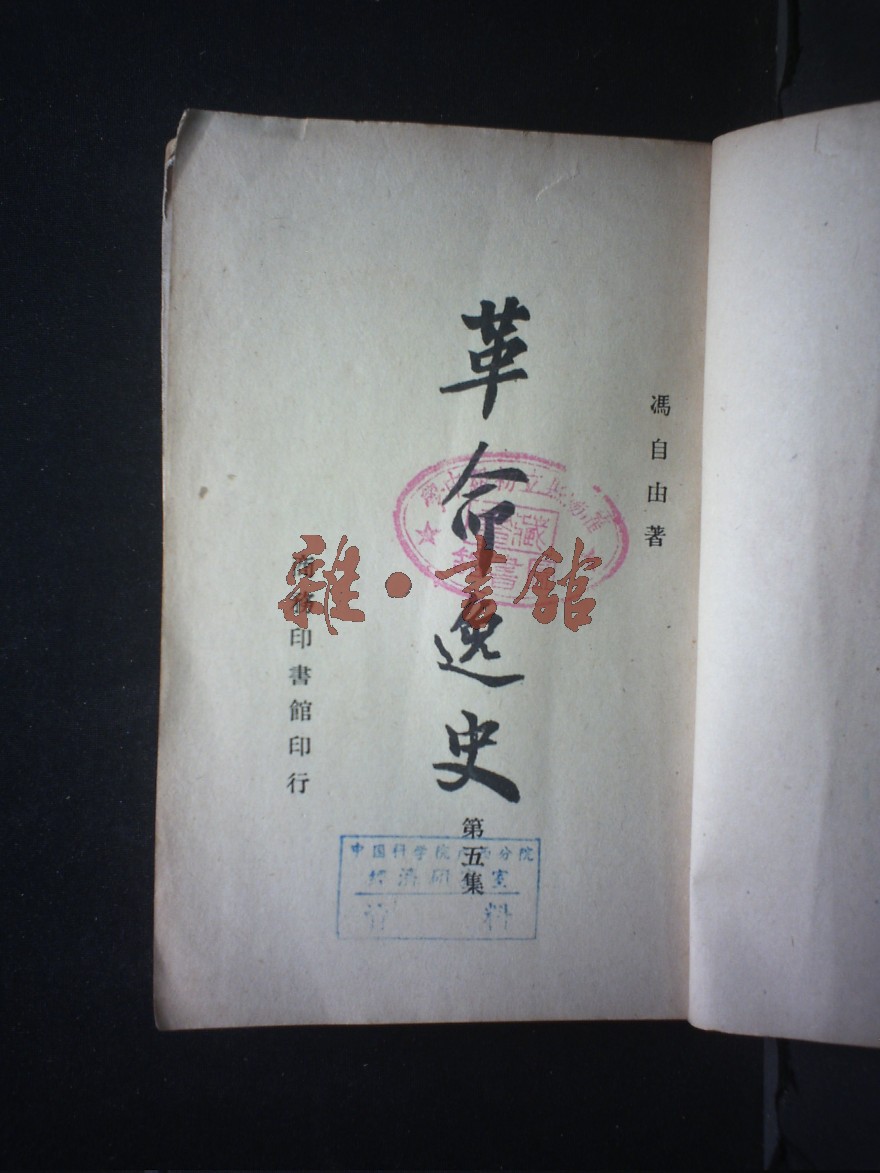 馮自由著
革命逸史
第五集
商務印書館印行
雜·書館
藏
書
中国科学院 分院
经济研 室
資料